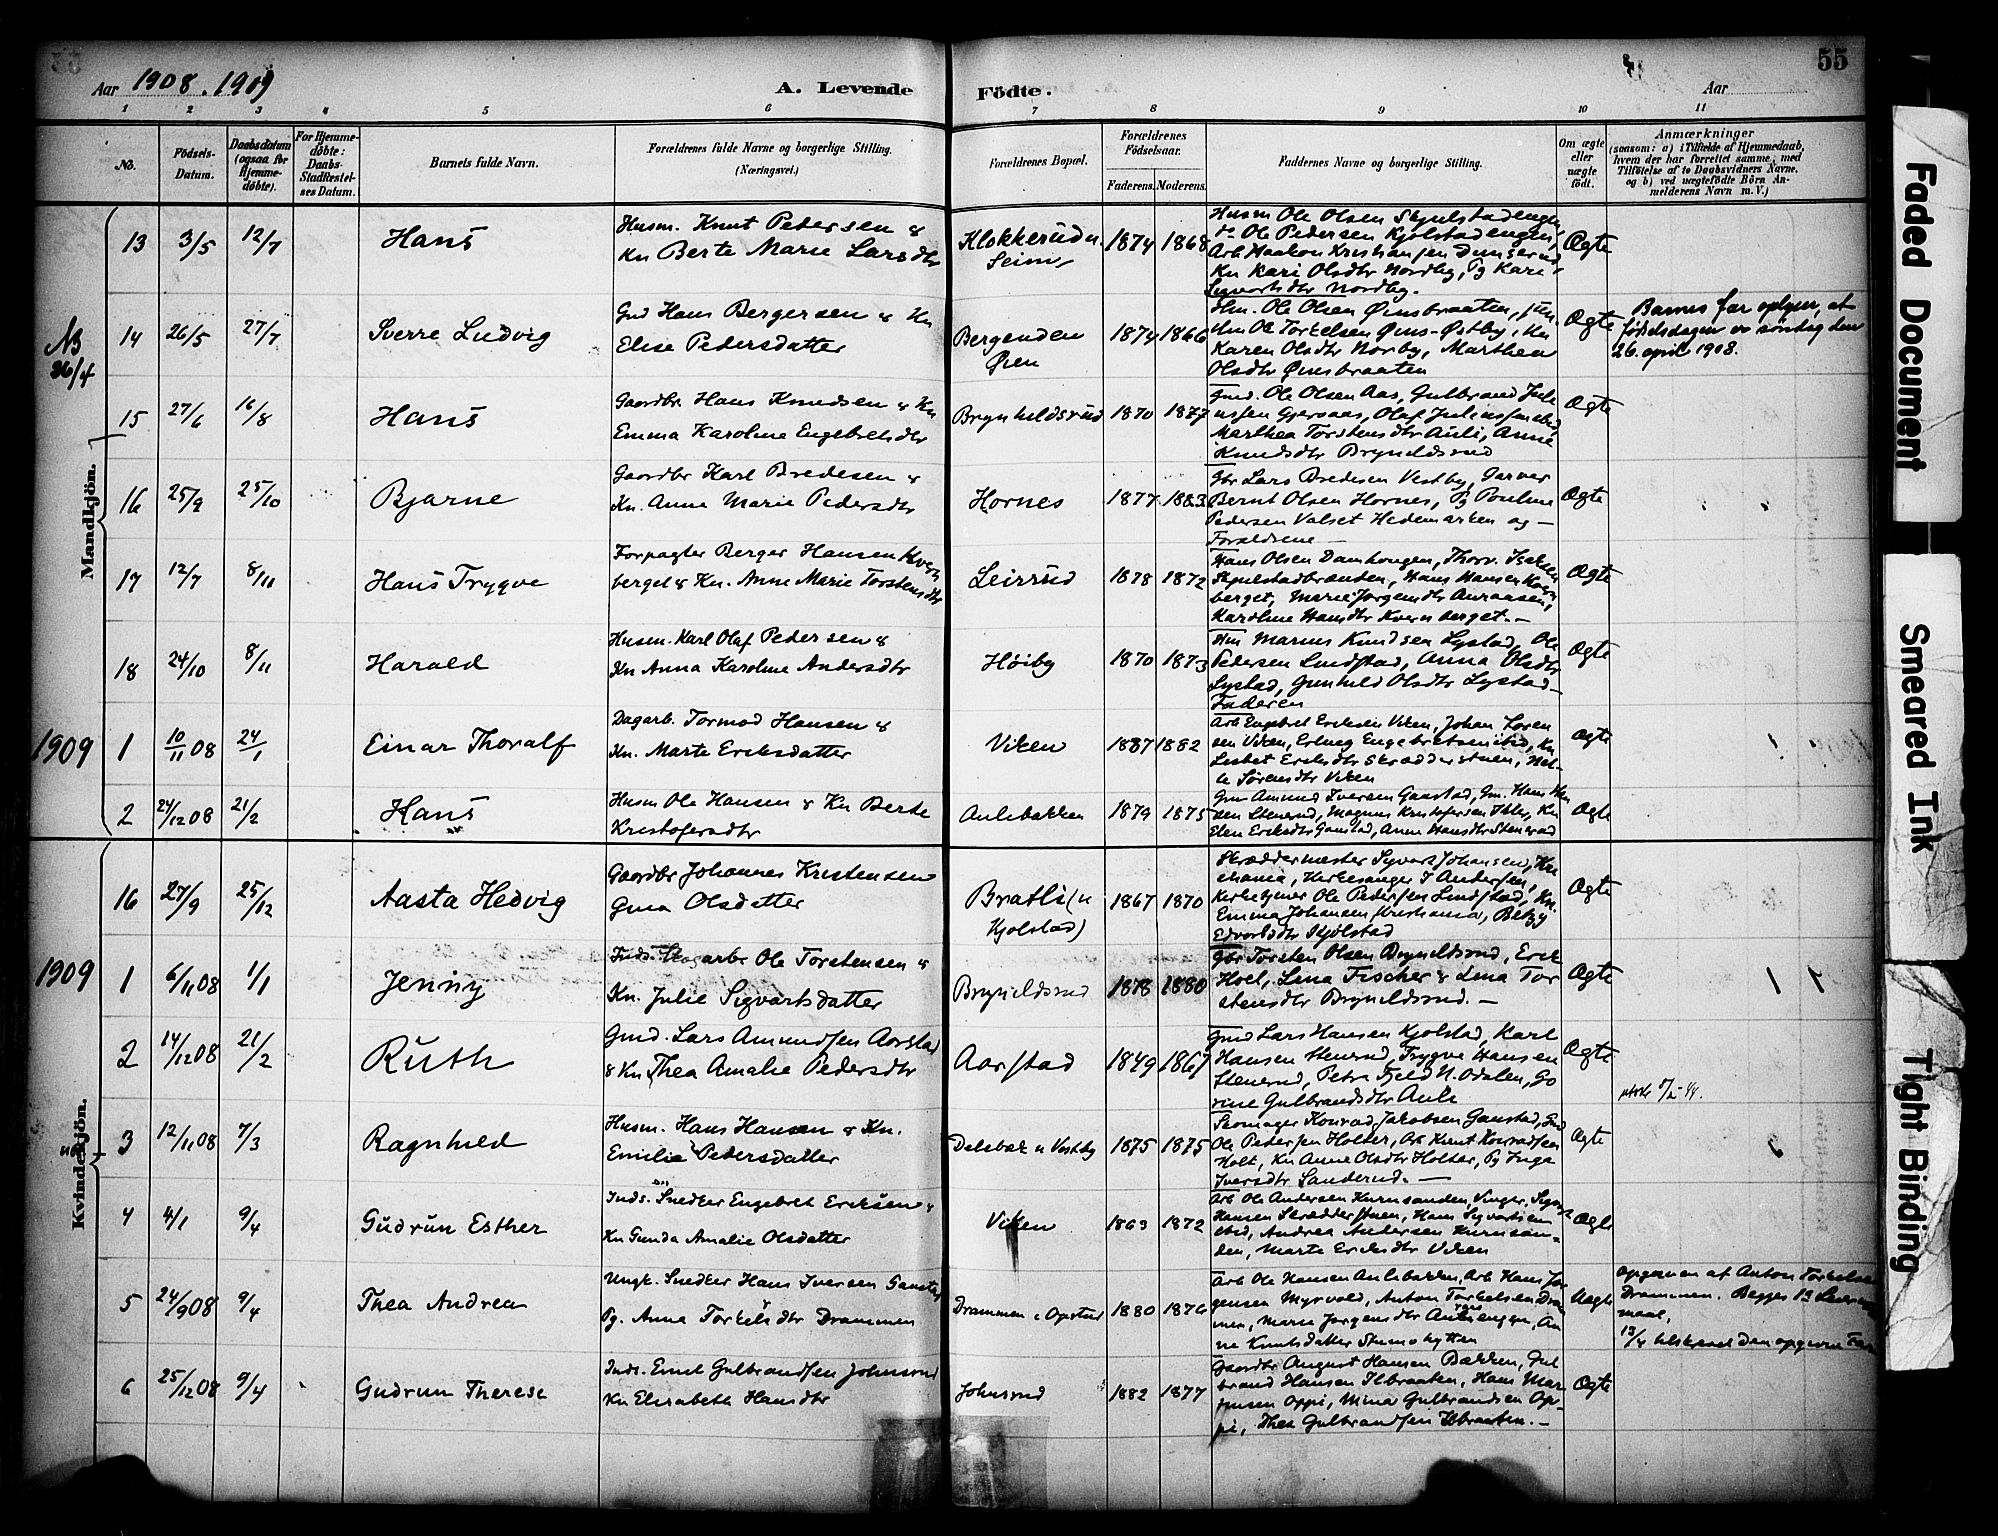 55
Aar 1908. 1909
A. Levende
Födte.
Aar
1 2 3 4 5 6 7 8 9 10 11
No.
Födsels-
Datum.
Daabsdatum
(ogsaa for
Hjemme-
döbte).
For Hjemme-
döbte:
Daabs-
Stadfestel-
ses Datum.
Barnets fulde Navn.
Forældrenes fulde Navne og borgerlige Stilling.
(Næringsvei.)
Forældrenes Bopæl.
Forældrenes
Födselsaar.
Faderens. Moderens.
Faddernes Navne og borgerlige Stilling.
Om ægte
eller
uægte
födt.
Anmærkninger
(saasom: a) i Tilfælde af Hjemmedaab,
hvem der har forrettet samme, med
Tilföielse af to Daabsvidners Navne,
og b) ved uægtefödte Börn An-
melderens Navn m. V.)
Mandkjön.
13 3/5 12/7 Hans
Husm. Knut Pedersen &
Kn Berte Marie Larsdtr
Klokkerud u.
Seim
1874 1868
Husm Ole Olsen Skjulstadengen
Ole Pedersen Kjolstadengen,
Arb Haakon Kristiansen
Kn Kari Olsdtr Nordby, Pg Kari
Sigvartsdtr Nordby.
Ægte
NB
26/4
14 26/5 27/7 Sverre Ludvig
Gmd Hans Bergersen & Kn
Elise Pedersdatter
Bergenden
Øien
1874 1866
Hm. Ole Olsen Ørnsbraaten,
Hm Ole Torkelsen Øens-Østby, Kn
Karen Olsdtr Norby, Marthea
Olsdtr Ørnsbraaten
Ægte
Barnes far oplyser, at
fødselsdagen va søndag den
26. april 1908.
15 27/6 16/8 Hans
Gaardbr. Hans Knudsen & Kn
Emma Karoline Engebretsdtr
Brynhildsrud
1870 1877
Gmd. Ole Olsen Aas, Gulbrand Jul-
iussen Gjersaas, Olaf Juliussen ibid,
Marthea Torstensdtr Auli, Anne
Knudsdtr Bryneldsrud
Ægte
16 25/9 25/10 Bjarne
Gaardbr Karl Bredesen &
Kn. Anne Marie Pedersdtr
Hornes
1877 1883
Gbr Lars Bredesen Vestby, Garver
Bernt Olsen Hornes, Pg Pouline
Pedersen Valset Hedemarken og —
Forældrene —
Ægte
17 12/7 8/11 Hans Trygve
Forpagter Berger Hansen Kvern
berget & Kn. Anne Marie Torstensdtr
Leirrud
1878 1872
Hans Olsen Damhaugen, Thorv. Isaksen
Skjulstadbraaten, Hans Hansen Kvern
berget, Marie Jorgensdtr Auraasen,
Karoline Hansdtr Kvernberget. —
Ægte
18 24/10 8/11 Harald
Husm. Karl Olaf Pedersen &
Kn Anna Karoline Andersdtr
Høiby
1870 1873
Hm Marius Knudsen Lystad, Ole
Pedersen Lundstad, Anna Olsdtr
Lystad, Gunhild Olsdtr Lystad —
Faderen
Ægte
1909
1 10/11 08 24/1 Einar Thoralf
Dagarb. Tormod Hansen &
Kn. Marte Eriksdatter
Viken
1887 1882
Arb Engebret Eriksen Viken, Johan Soren
sen Viken, Erling Engebretsen ibid, Kn
Lisbet Eriksdtr Skrædderstuen, Hel-
le Sørensdtr Viken
Ægte
2 24/12 08 21/2 Hans
Husm Ole Hansen & Kn Berte
Kristofersdtr
Aulebakken
1879 1875
Gm Amund Iversen Gaustad, Gm. Hans Han
sen Stenerud, Magnus Kristofersen Ihle, Kn
Elen Eriksdtr Gaustad, Anne Hansdtr Stenerud
Ægte
Kvindekjön.
16 27/9 25/12 Aasta Hedvig
Gaardbr Johannes Kristensen
Gina Olsdatter
Bratli (u
Kjolstad)
1867 1870
Skræddermester Sigvart Johansen, Kri
stiania, Kirkesanger J Andersen,
Kirketjener Ole Pedersen Lundstad, Kn.
Emma Johansen Kristiania, Betzy
Edvardsdtr Kjölstad
Ægte
1909
1 6/11 08 1/1 Jenny
Inds. Skogarbr Ole Torstensen &
Kn. Julie Sigvartsdatter
Bryneldsrud
1878 1880
Gbr Torsten Olsen Bryneldsrud, Erik
Hoel, Lina Fischer & Lina Tor
stensdtr Bryneldsrud. —
Ægte
2 14/12 08 21/2 Ruth
Gmd. Lars Amundsen Aarstad
& Kn Thea Amalie Pedersdtr
Aarstad
1849 1867
Gmd Lars Hansen Kjolstad, Karl
Hansen Stenerud, Trygve Hansen
Stenerud, Petra Fjeld N. Odalen, Go
rine Gulbrandsdtr Aule
Ægte
3 12/11 08 7/3 Ragnhild
Husm. Hans Hansen & Kn.
Emilie Pedersdatter
Delebæk u Vestby
1875 1875
Skomager Konrad Jakobsen Gaustad, Gmd
Ole Pedersen Holter, Arb Knut Konradsen
Holt, Kn Anne Olsdtr Holter, Pg Inga
Iversdtr Sanderud. —
Ægte
4 4/1 9/4 Gudrun Esther
Inds. Snedker Engebret Eriksen &
Kn Gunda Amalie Olsdatter
Viken
1863 1872
Arb Ole Andersen Kurusanden, Vinger, Sigvart
Hansen Skrædderstuen, Hans Sigvartsen
ibid, Andrea Andersen Kurusan-
den, Marte Eriksdtr Viken
Ægte
5 24/9 08 9/4 Thea Andrea
Ungk. Snedker Hans Iversen Gaustad
Pg. Anna Torkelsdtr Drammen
Drammen
1880 1876
Arb Ole Hansen Aulebakken, Arb Hans Jør
gensen Myrvold, Anton Torkelsen Dram
men, Marie Jorgensdtr Aulienggen, An
ne Knutsdatter Smmohytten
Uægte
opgiven af Anton Torkelsen
Drammen. Begges 1ste Leier-
maal.
6 25/12 08 9/4 Gudrun Therese
Inds. Emil Gulbrandsen Johnsrud
Kn Elisabeth Hansdtr
Johnsrud
1882 1877
Gaardbr August Hansen Bakken, Gul
brand Hansen Ilbraaten, Hans Mar
tinsen Oppi, Mina Gulbrandsen Op-
pi, Thea Gulbrandsen Ilbraaten. —
Ægte
Faded Document
Smeared Ink
Tight Binding